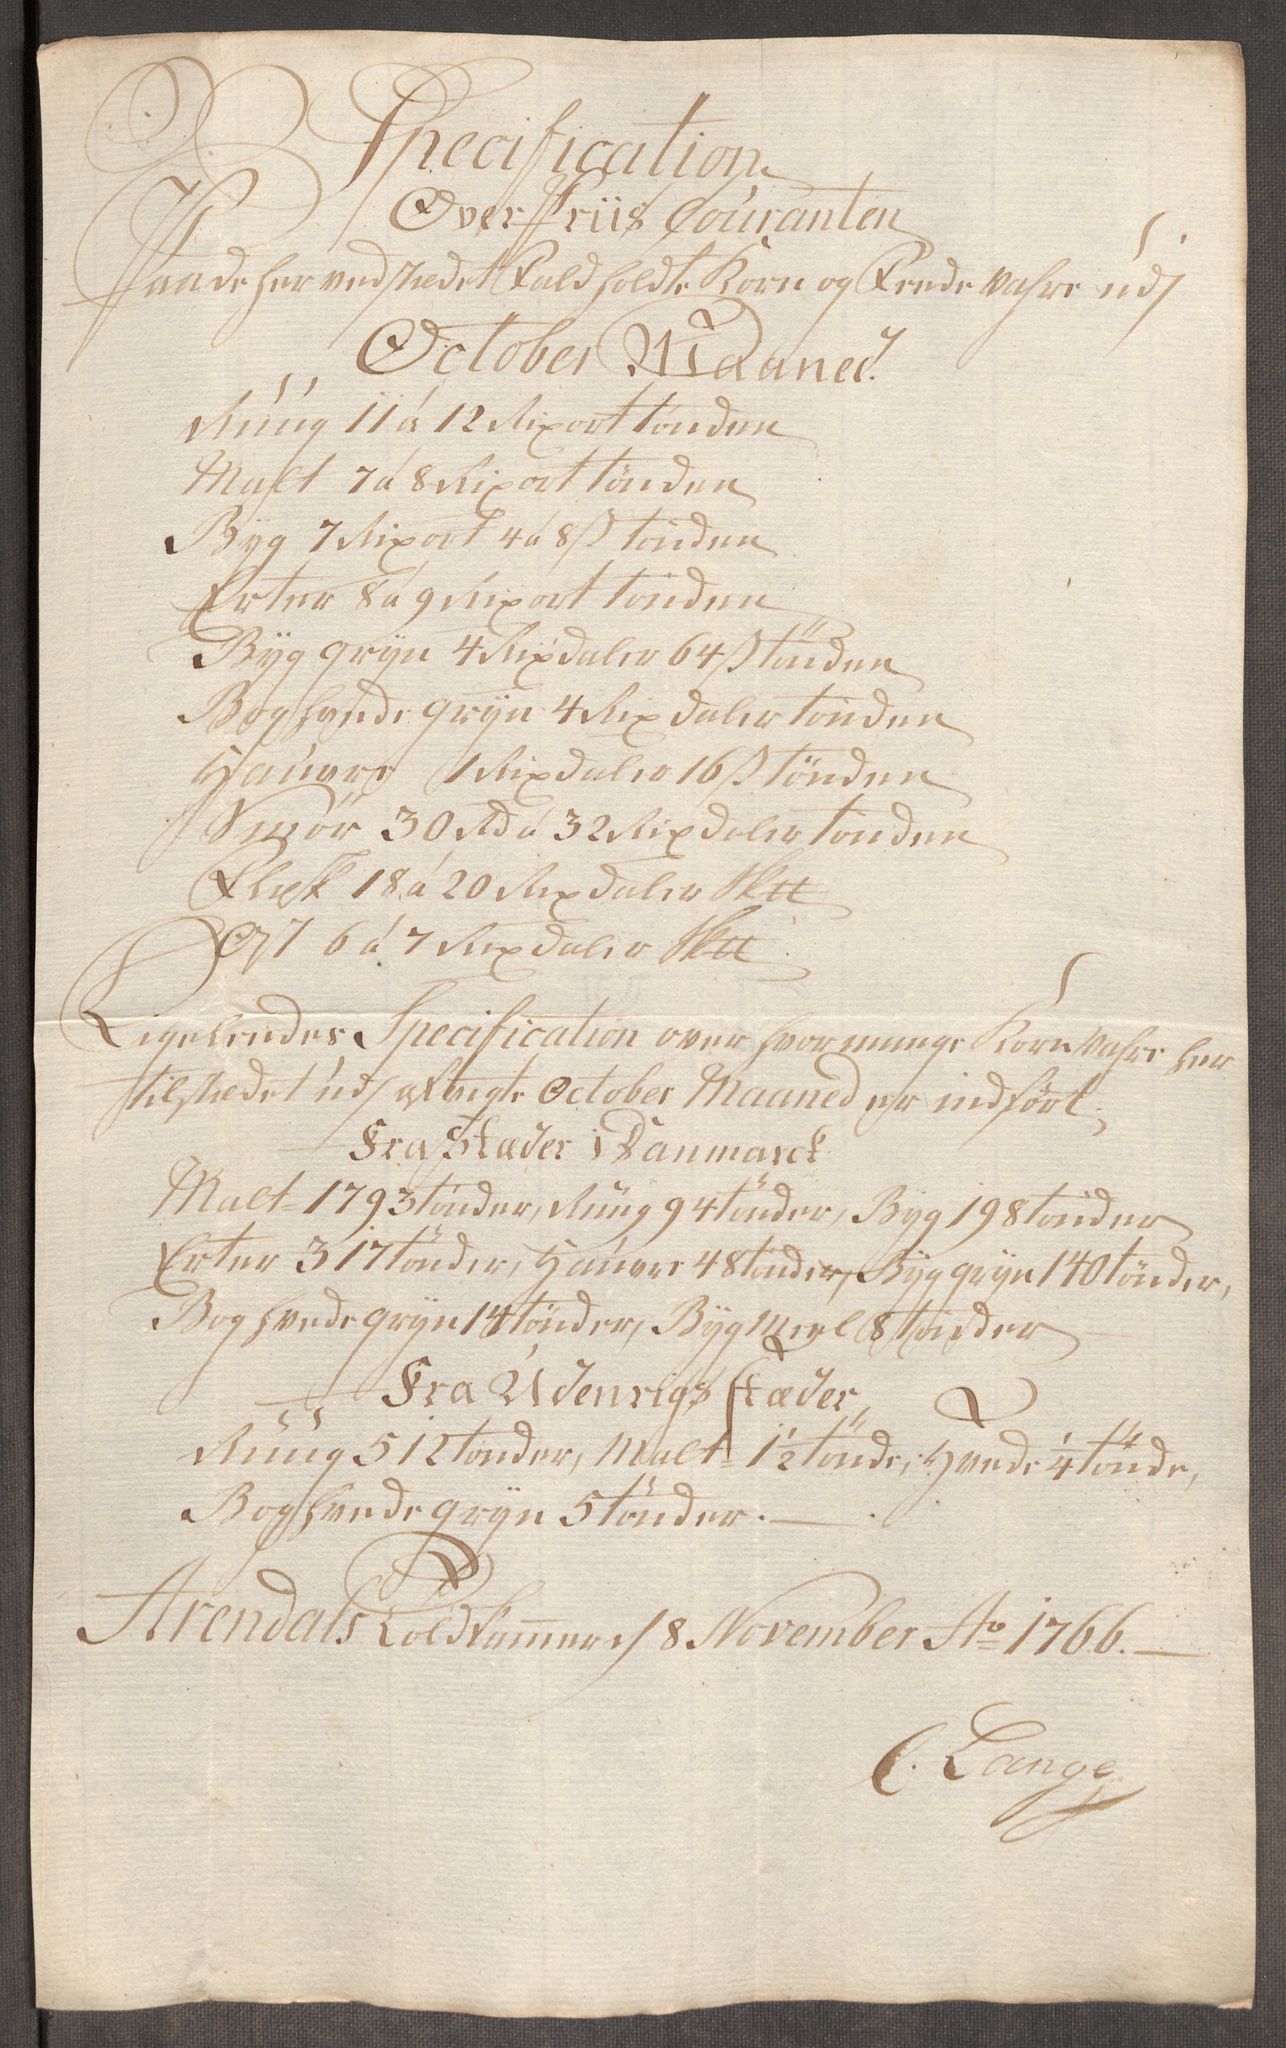 Specification
Over Priis Couranten
Paa de her ved stædet Fald holdte Korn og Fede Vahre udj
October Maaned.
Rüug 11 á 12 Rixort tønden
Malt 7 á 8 Rixort tønden
Byg 7 Rixort 4 á 8 ß tønden
Erter 8 á 9 Rixort tønden
Byg gryn 4 Rixdaler 64 ß tønden
Boghvede gryn 4 Rixdaler tønden
Hauvre 1 Rixdaler 16 ß tønden
Smør 30 Rd á 32 Rixdaler tønden
Flesk 18 á 20 Rixdaler Sktt
Ost 6 á 7 Rixdaler Sktt.
Ligeledes Specification over hvor mange Korn Vahre her
til stædet udj afvigte October Maaned er indført.
Fra Stæder i Danmarck
Malt 1793 tønder, Rüug 94 tønder, Byg 198 tønder
Erter 317 tønder, Hauvre 48 tønder, Byg gryn 140 tønder,
Boghvede gryn 14 tønder, Byg Meel 8 tønder
Fra Udenrigs stæder,
Rüug 512 tønder, Malt 1½ tønde, Hvede ¼ tønde,
Boghvede gryn 5 tønder.
Arendals Toldkammer d 8 November Ao 1766.
C. Lange